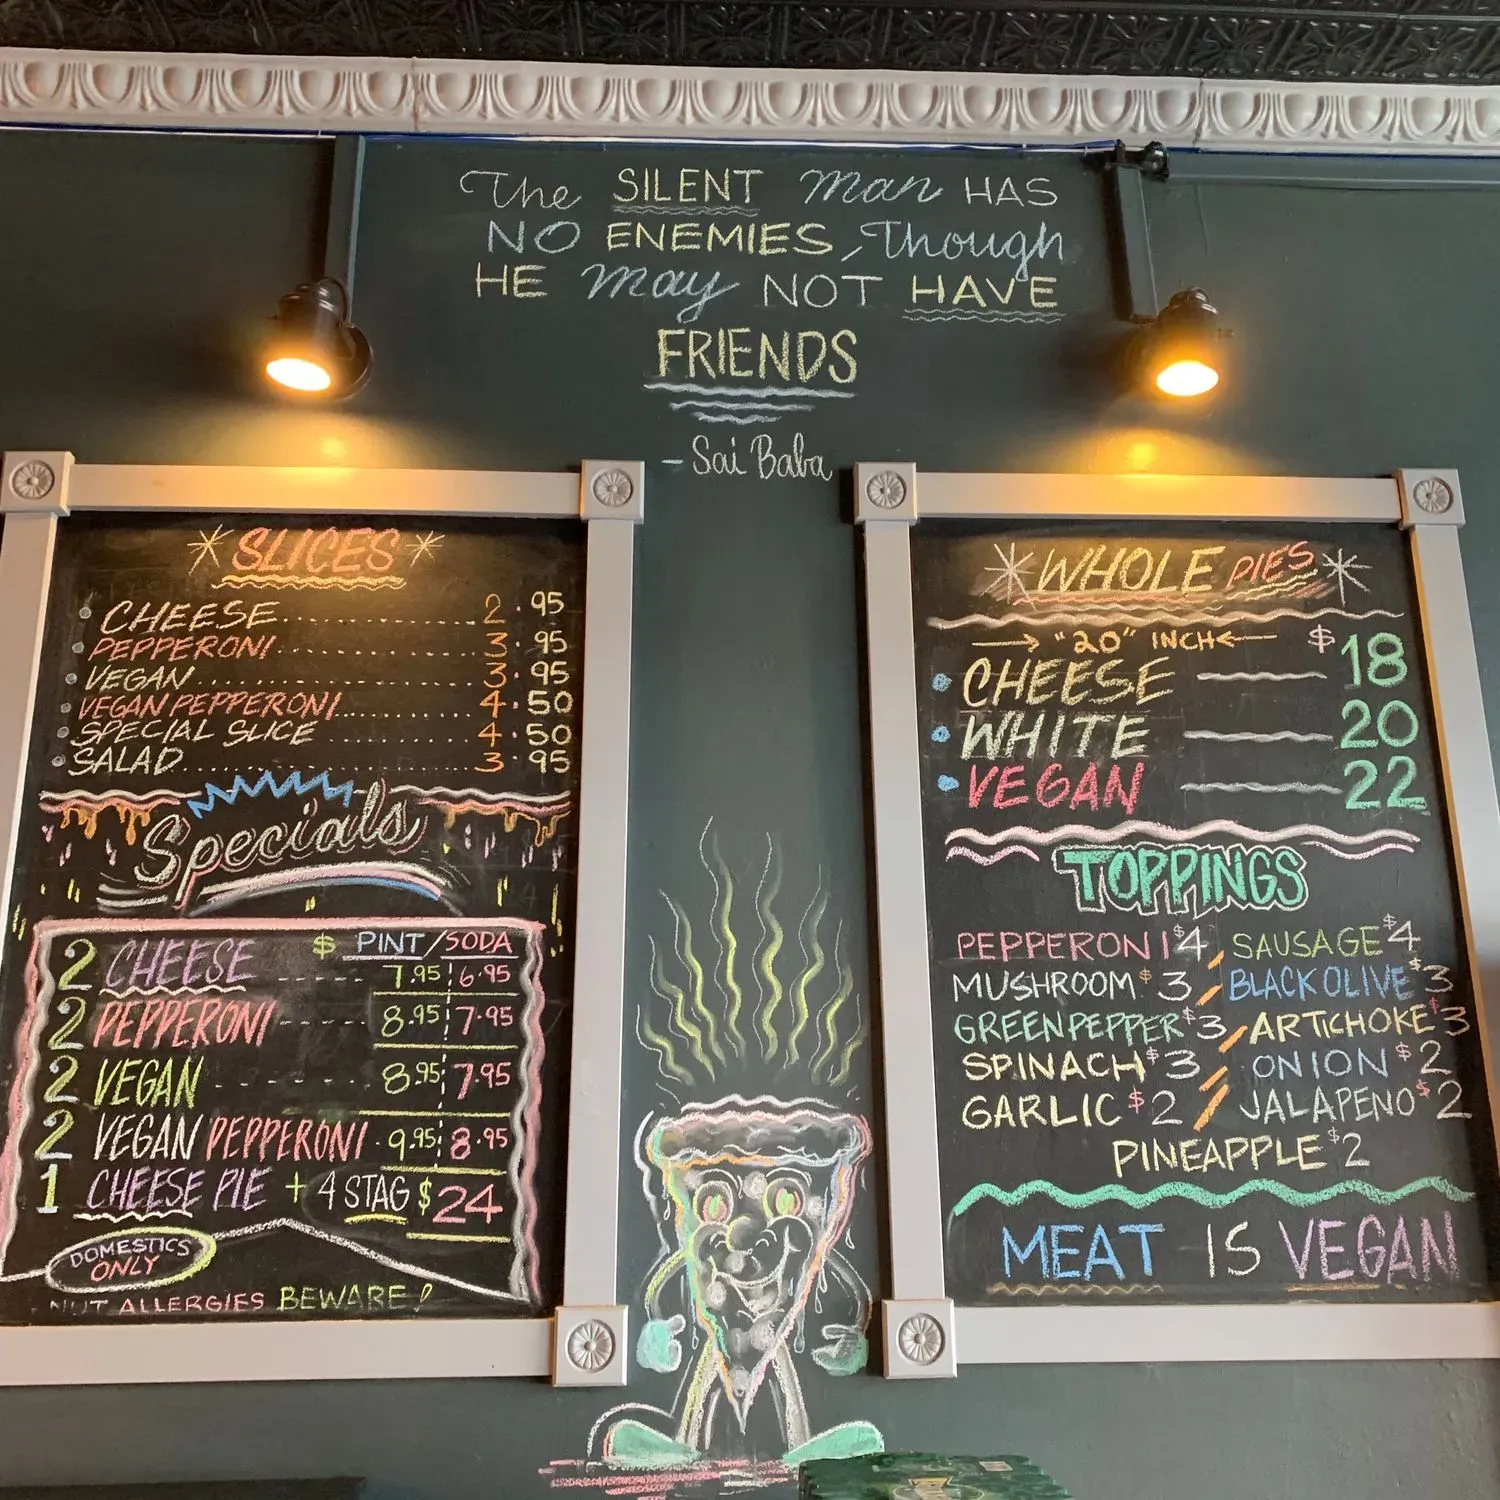 The SILENT man HAS
NO ENEMIES, Though
HE may NOT HAVE
FRIENDS
- Sai Baba
SLICES
CHEESE 2.95
PEPPERONI 3.95
VEGAN 3.95
VEGAN PEPPERONI 4.50
SPECIAL SLICE 4.50
SALAD 3.95
Specials
$ PINT/SODA
2 CHEESE 7.95 6.95
2 PEPPERONI 8.95 7.95
2 VEGAN 8.95 7.95
2 VEGAN PEPPERONI 9.95 8.95
1 CHEESE PIE + 4 STAG $24
DOMESTICS
ONLY
NUT ALLERGIES BEWARE!
WHOLE PIES
"20" INCH
CHEESE $18
WHITE 20
VEGAN 22
TOPPINGS
PEPPERONI $4 / SAUSAGE $4
MUSHROOM $3 / BLACK OLIVE $3
GREEN PEPPER $3 / ARTICHOKE $3
SPINACH $3 / ONION $2
GARLIC $2 / JALAPENO $2
PINEAPPLE $2
MEAT IS VEGAN